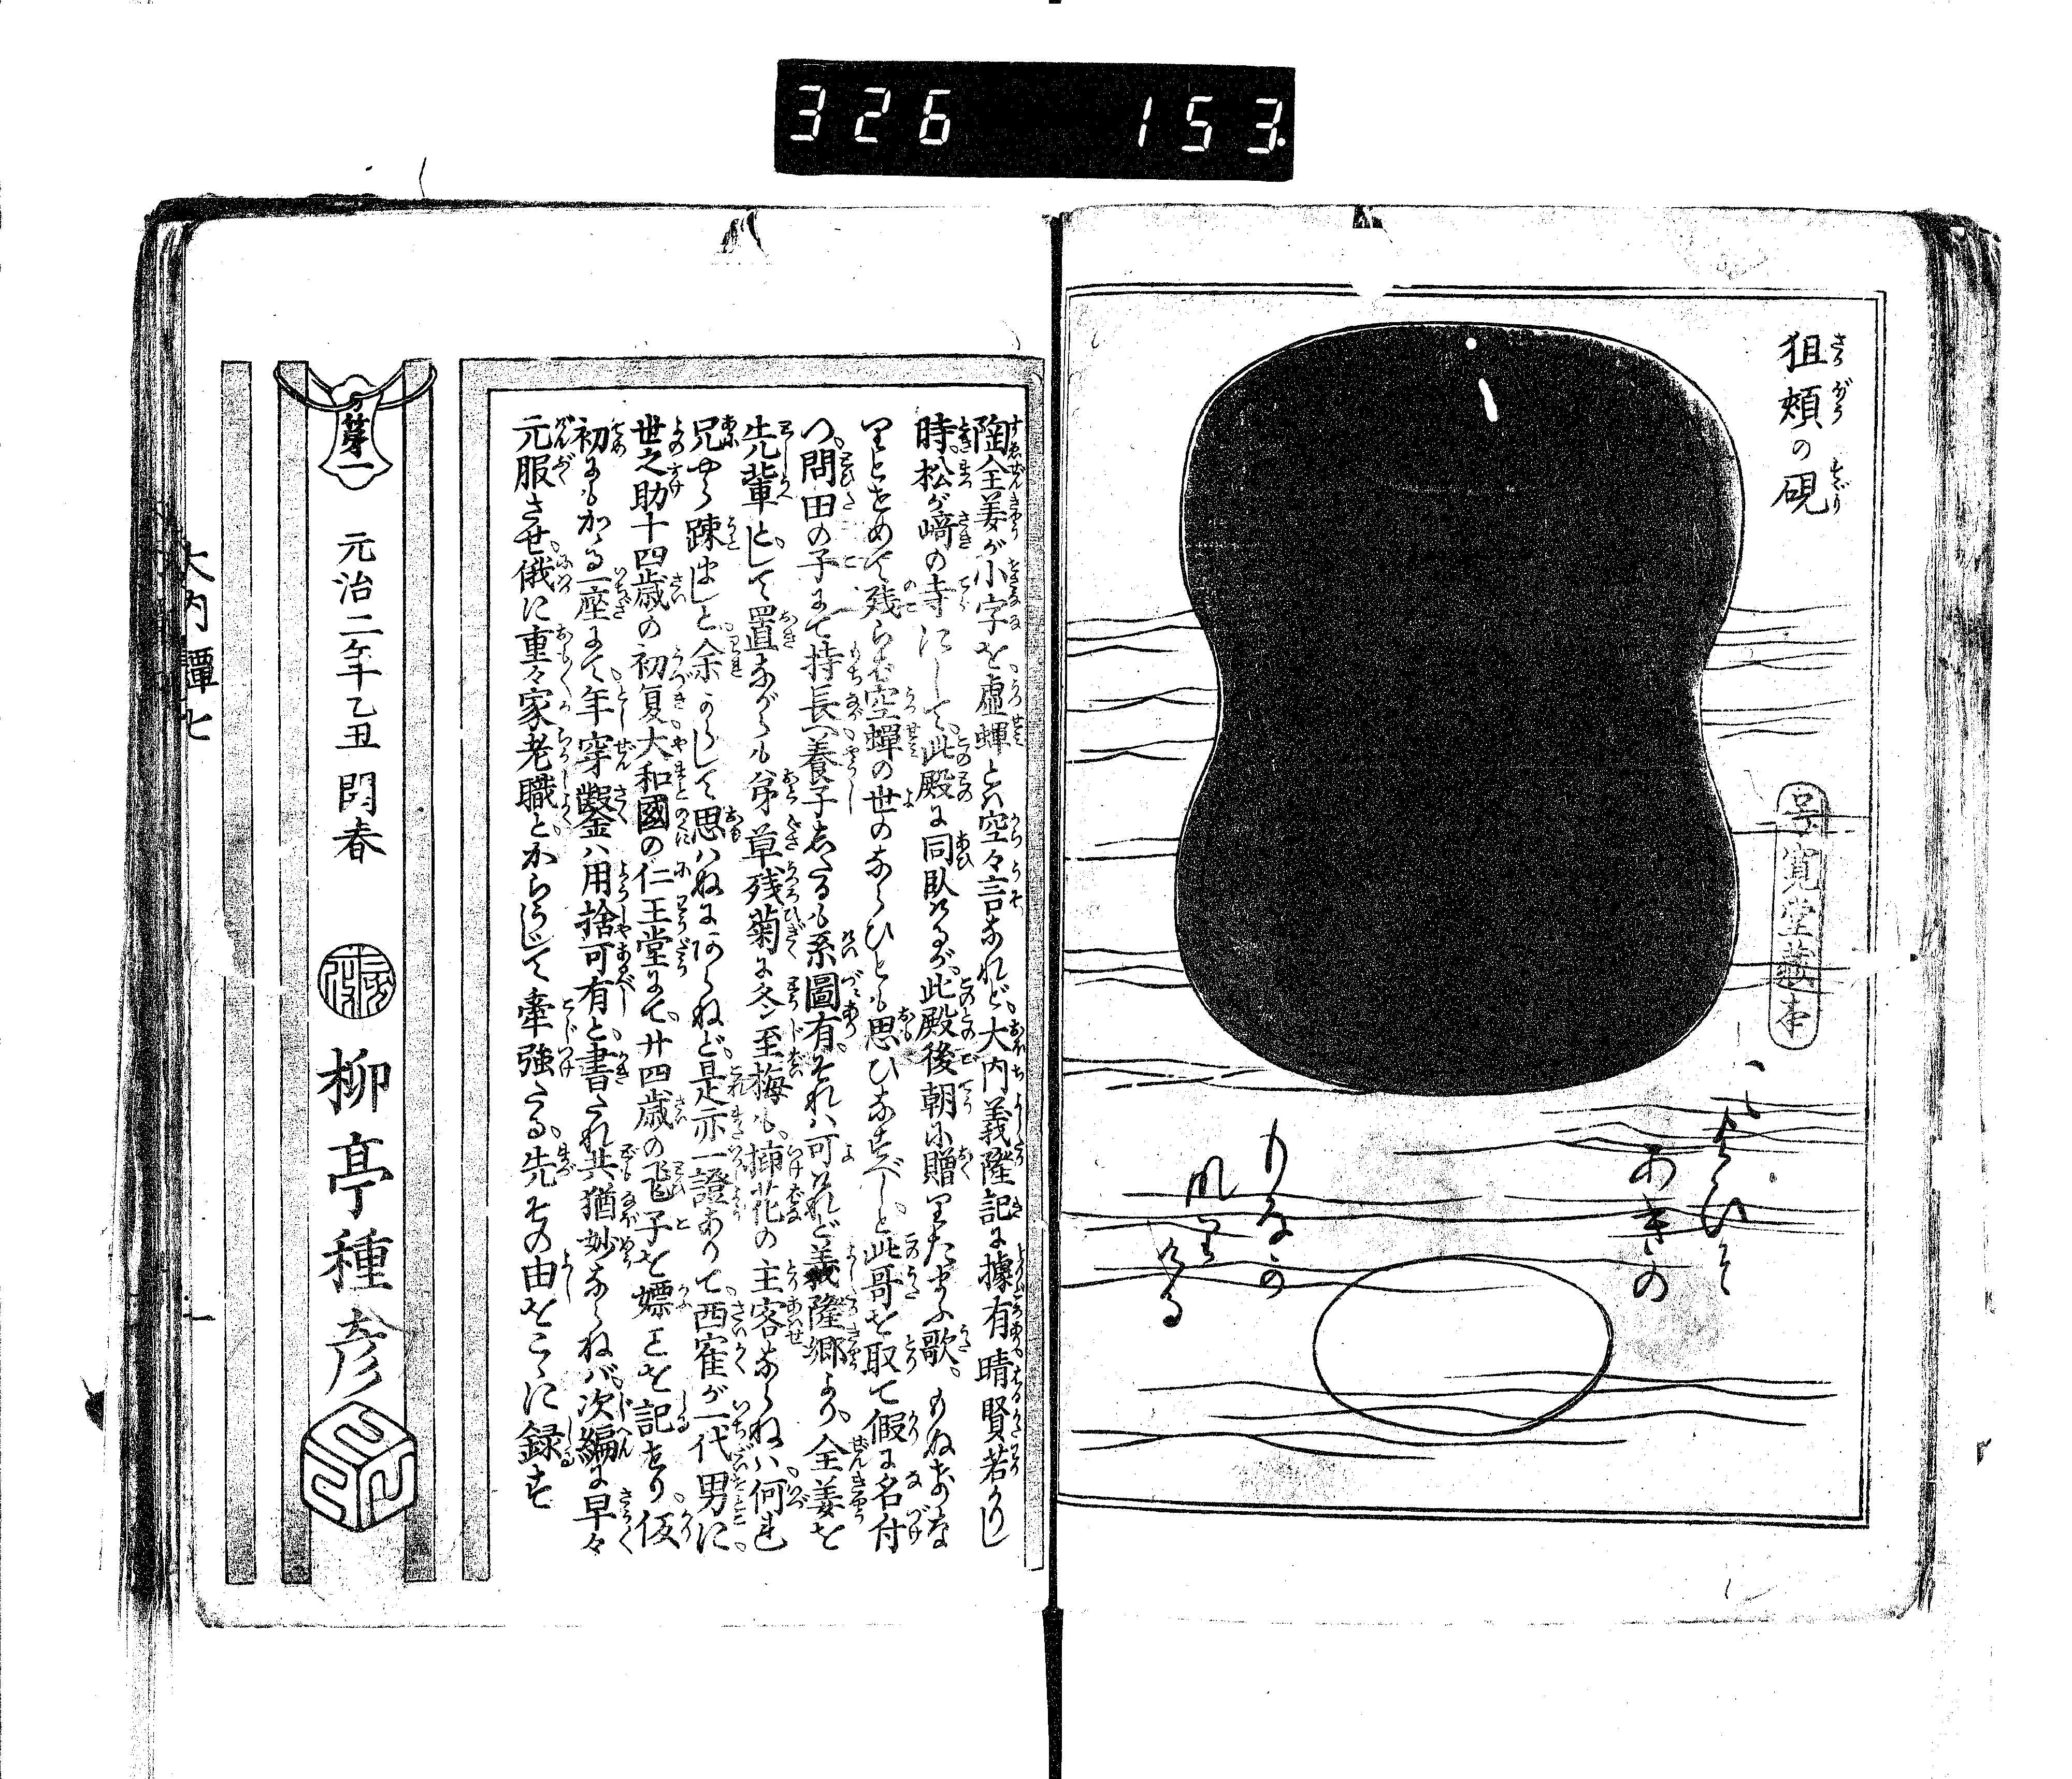 326 153.
狙頬の硯
呉寛堂蔵本
あきの
陶全姜が小字を虚蝉とハ空々言なれど大内義隆記に據有晴賢若かりし
時松が﨑の寺にして此殿に同臥けるが此殿後朝に贈りたまふ歌
りとをめて残らば空蝉の世のならひとも思ひなすべしと此哥を取て假に名付
つ問田の子にて持長一養子したるも系圖有それハ可けれど義隆郷より全姜を
先輩として置ながらも弟草残菊に冬至梅も挿花の主客ならねハ何れ
兄やら踈ましと余りらして思ハぬにあらねど是亦一證ありて西寉が一代男に
世之助十四歳の初夏大和國の仁王堂にて廿四歳の飛子を嫖ことを記せり仮
初にもかゝる一座にて年穿鑿ハ用捨可有と書たれ共猶妙ならねバ次編に早々
元服させ俄に重々家老職とからうじて牽強たる先その由をこゝに録す
芽一
元治二年乙丑開春
柳亭種彦
大内譚七
一